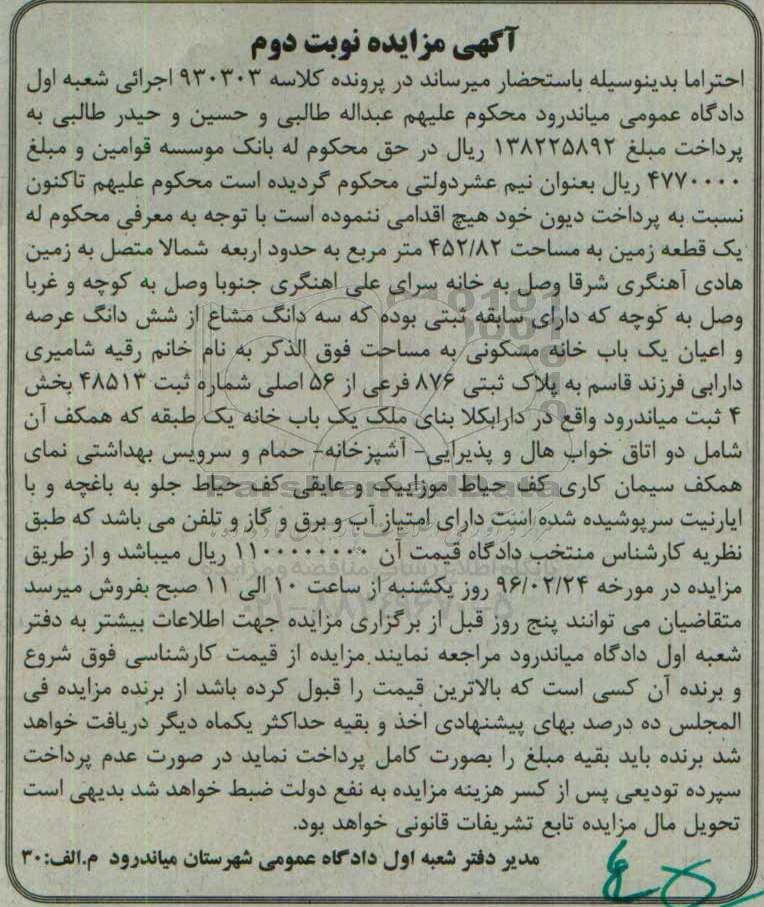 آگهی مزایده نوبت دوم
احتراما بدینوسیله باستحضار میرساند در پرونده کلاسه ۹۳۰۳۰۳ اجرائی شعبه اول
دادگاه عمومی میاندرود محکوم علیهم عبداله طالبی و حسین و حیدر طالبی به
پرداخت مبلغ ۱۳۸۲۲۵۸۹۲ ریال در حق محکوم له بانک موسسه قوامین و مبلغ
۴۷۷۰۰۰۰ ریال بعنوان نیم عشردولتی محکوم گردیده است محکوم علیهم تاکنون
نسبت به پرداخت دیون خود هیچ اقدامی ننموده است با توجه به معرفی محکوم له
یک قطعه زمین به مساحت ۴۵۲/۸۲ متر مربع به حدود اربعه شمالا متصل به زمین
هادی آهنگری شرقا وصل به خانه سرای علی اهنگری جنوبا وصل به کوچه و غربا
وصل به کوچه که دارای سابقه ثبتی بوده که سه دانگ مشاع از شش دانگ عرصه
و اعیان یک باب خانه مسکونی به مساحت فوق الذکر به نام خانم رقیه شامیری
دارابی فرزند قاسم به پلاک ثبتی ۸۷۶ فرعی از ۵۶ اصلی شماره ثبت ۴۸۵۱۳ بخش
۴ ثبت میاندرود واقع در دارابکلا بنای ملک یک باب خانه یک طبقه که همکف آن
شامل دو اتاق خواب هال و پذیرایی- آشپزخانه- حمام و سرویس بهداشتی نمای
همکف سیمان کاری کف حیاط موزاییک و عایقی کف حیاط جلو به باغچه و با
ایارنیت سرپوشیده شده است دارای امتیاز آب و برق و گاز و تلفن می باشد که طبق
نظریه کارشناس منتخب دادگاه قیمت آن ۱۱۰۰۰۰۰۰۰۰ ریال میباشد و از طریق
مزایده در مورخه ۹۶/۰۲/۲۴ روز یکشنبه از ساعت ۱۰ الی ۱۱ صبح بفروش میرسد
متقاضیان می توانند پنج روز قبل از برگزاری مزایده جهت اطلاعات بیشتر به دفتر
شعبه اول دادگاه میاندرود مراجعه نمایند.مزایده از قیمت کارشناسی فوق شروع
و برنده آن کسی است که بالاترین قیمت را قبول کرده باشد از برنده مزایده فی
المجلس ده درصد بهای پیشنهادی اخذ و بقیه حداکثر یکماه دیگر دریافت خواهد
شد برنده باید بقیه مبلغ را بصورت کامل پرداخت نماید در صورت عدم پرداخت
سپرده تودیعی پس از کسر هزینه مزایده به نفع دولت ضبط خواهد شد بدیهی است
تحویل مال مزایده تابع تشریفات قانونی خواهد بود.
مدیر دفتر شعبه اول دادگاه عمومی شهرستان میاندرود م.الف:۳۰